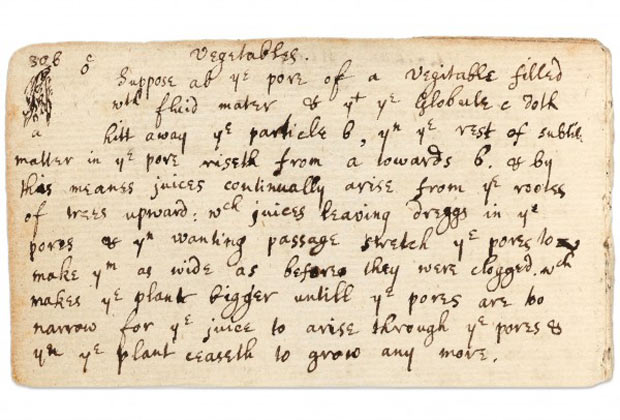 306 c Vegetables.
Suppose ab yᵉ pore of a Vegitable filled
wᵗʰ fluid mater & yᵗ yᵉ Globule c doth
a hitt away yᵉ particle b, yⁿ yᵉ rest of subtile
matter in yᵉ pore riseth from a towards b. & by
this means juices continually arise from yᵉ roots
of trees upward: wᶜʰ juices leaving dreggs in yᵉ
pores & yⁿ wanting passage stretch yᵉ pores to
make yᵐ as wide as before they were clogged. wᶜʰ
makes yᵉ plant bigger untill yᵉ pores are too
narrow for yᵉ juice to arise through yᵉ pores &
yⁿ yᵉ plant ceaseth to grow any more.